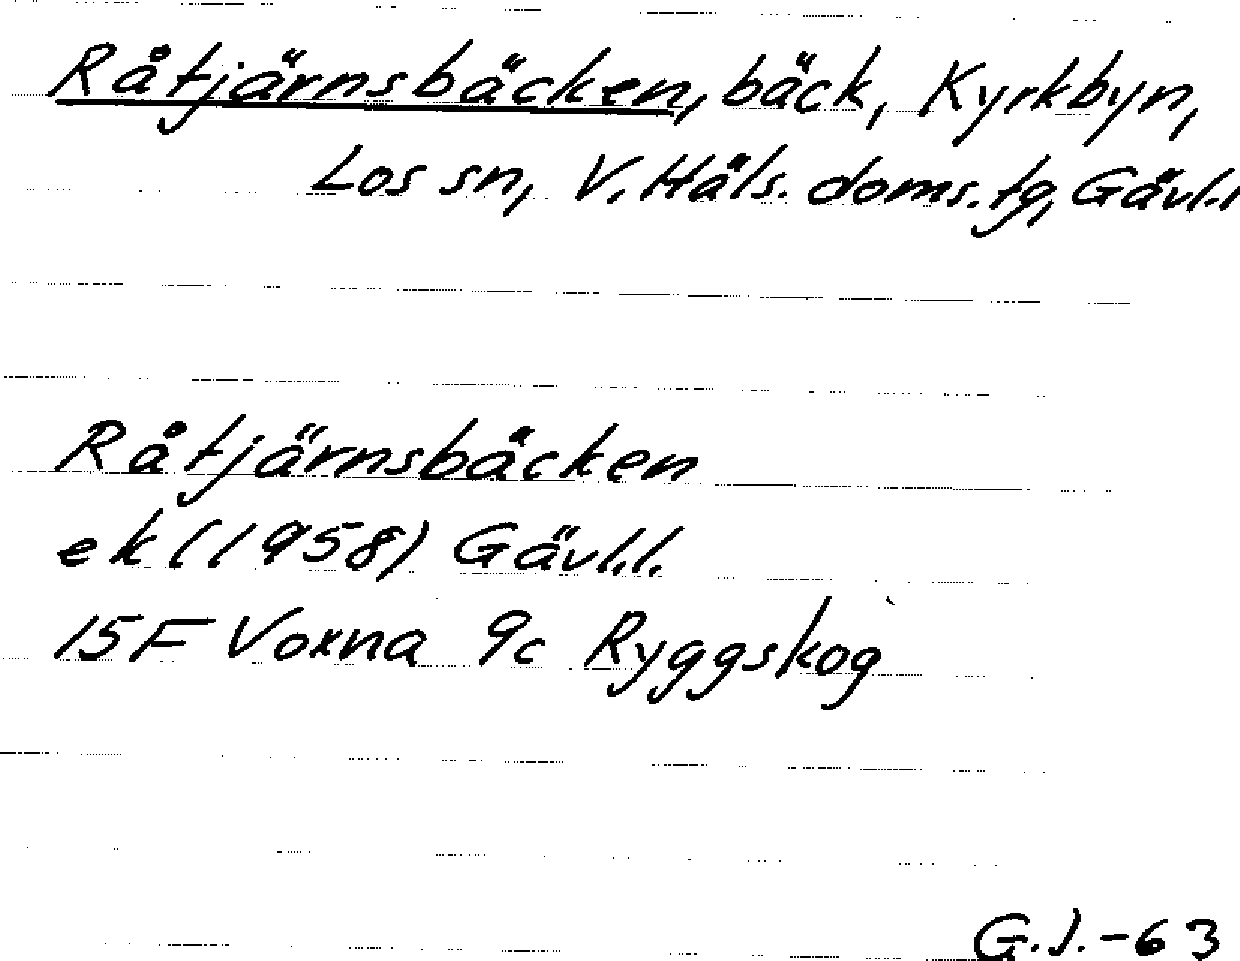 Råtjärnsbäcken, bäck, Kyrkbyn,
Los sn, V. Häls. doms. tg, Gävl.l
Råtjärnsbäcken
ek (1958) Gävl.l.
15F Voxna 9c Ryggskog
G.J.-63